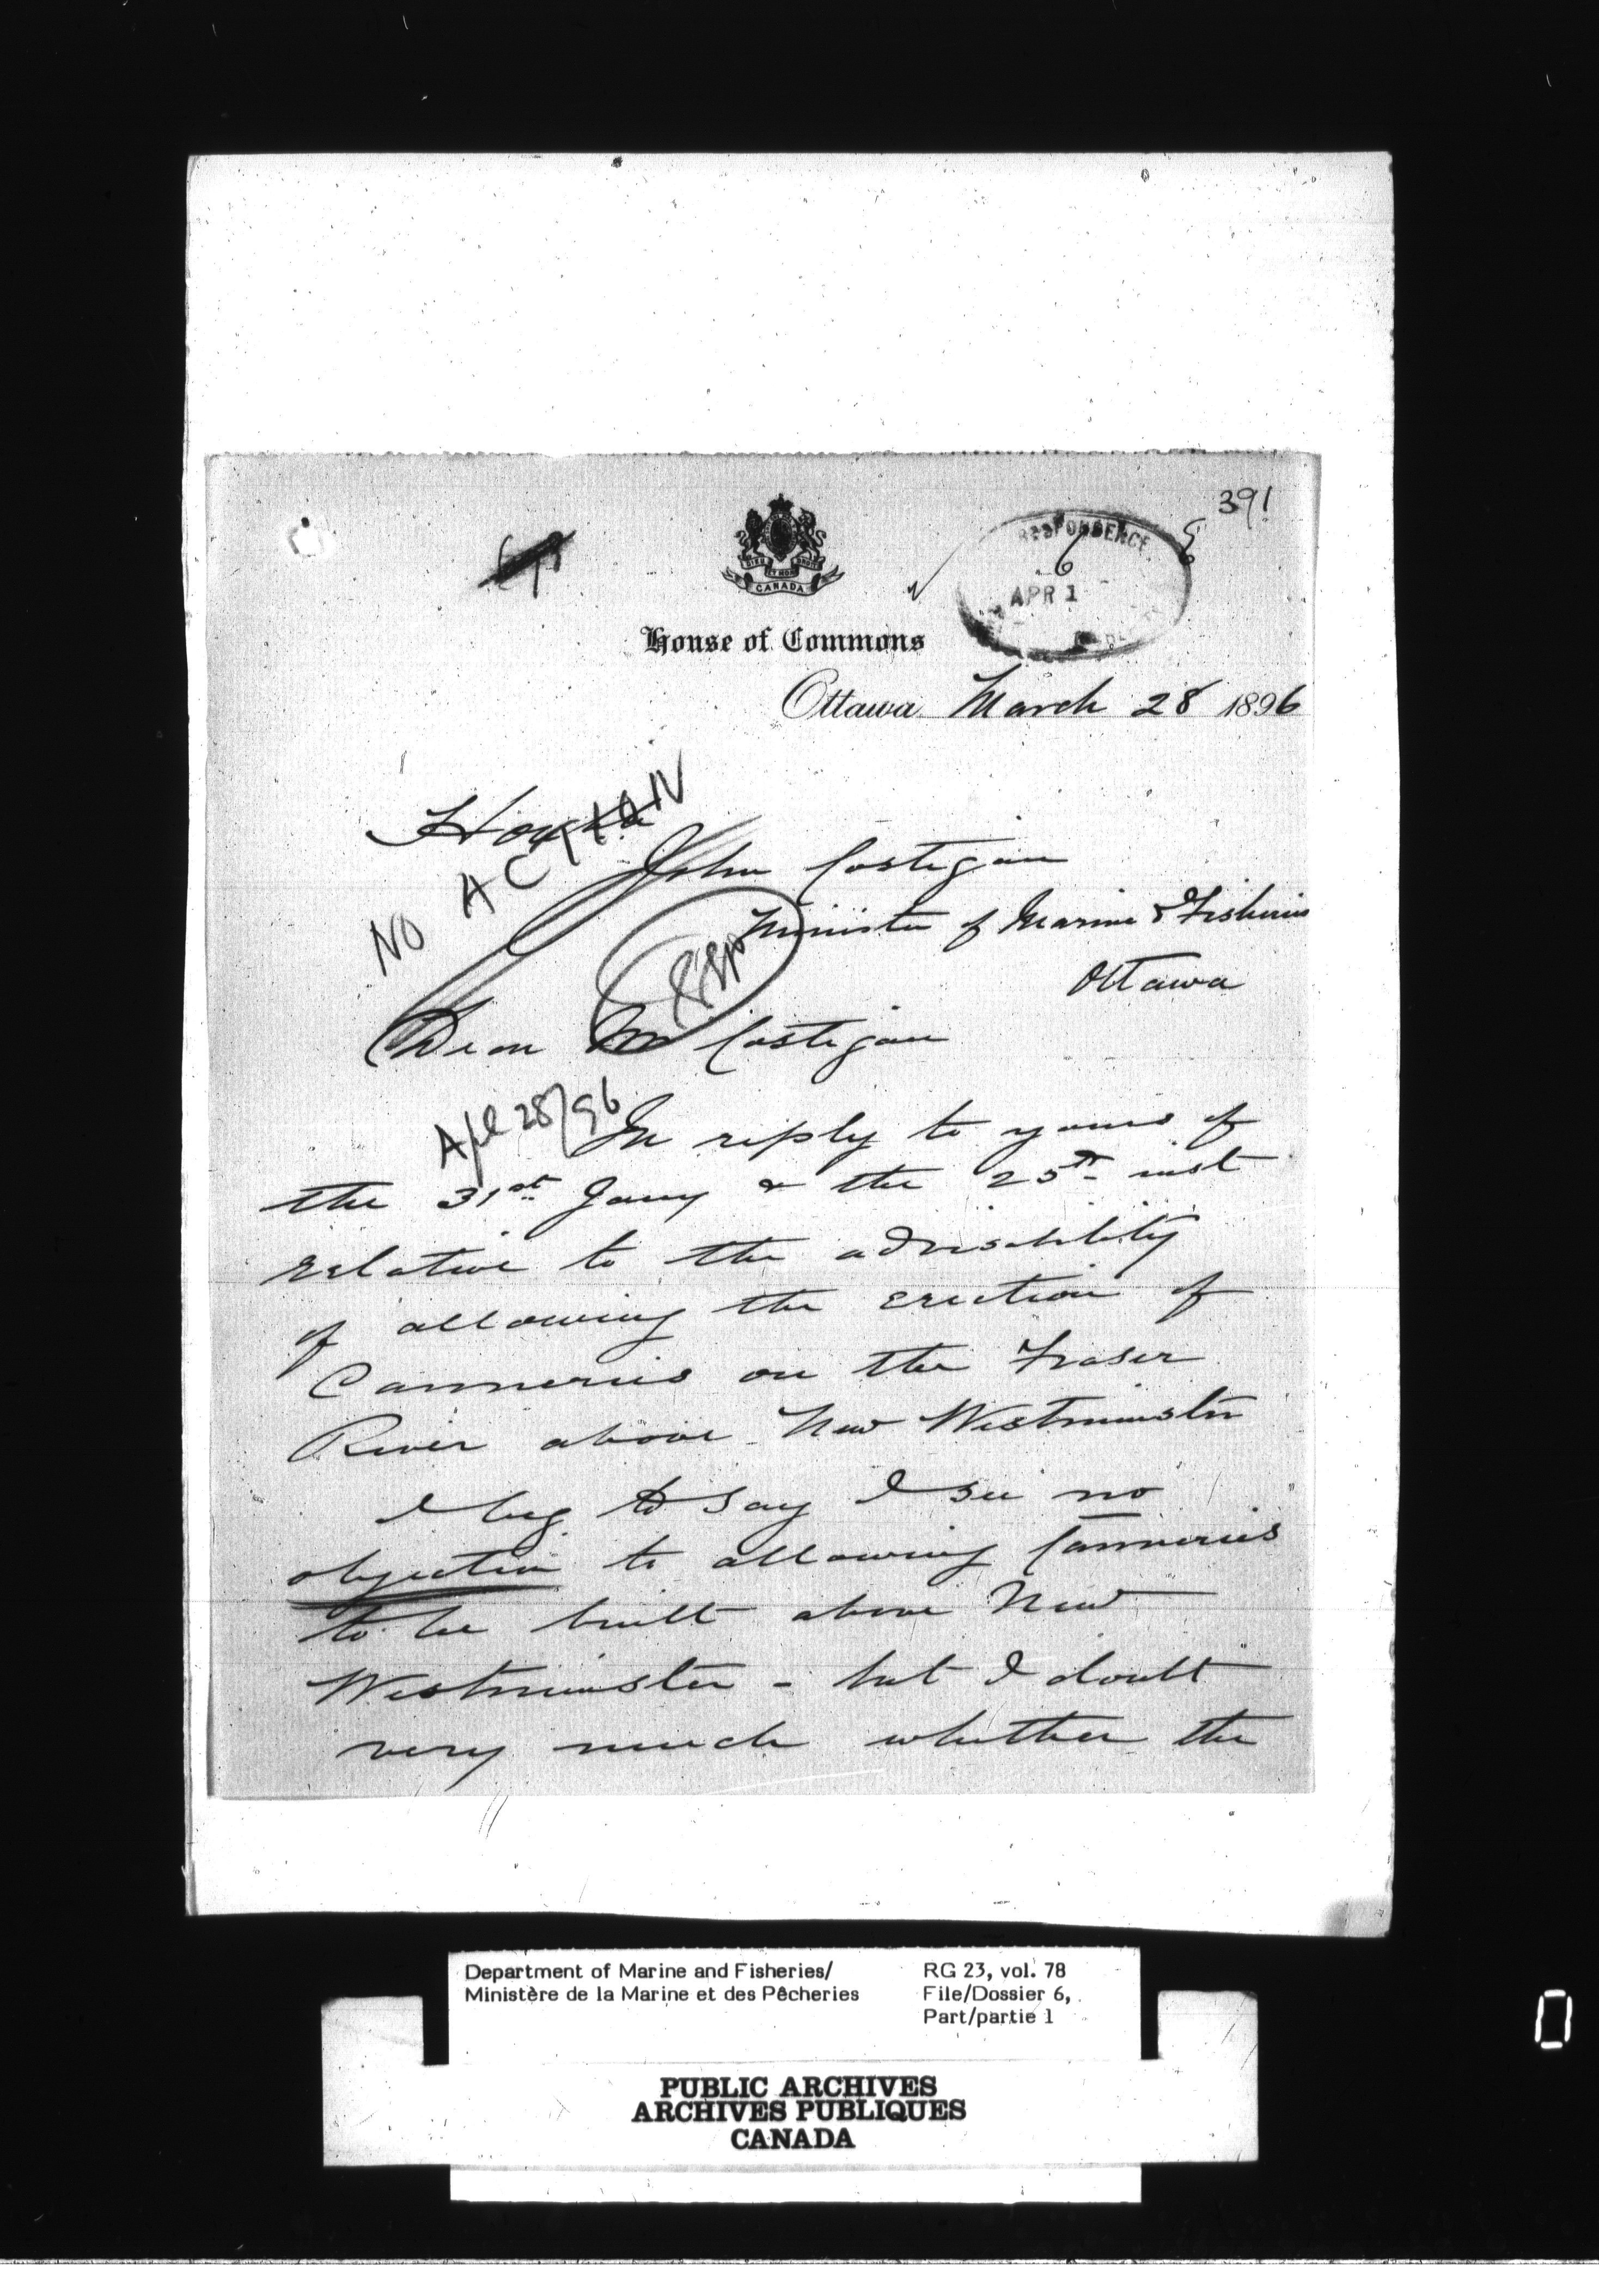 391
RESPONDENCE
6
APR 1
DIEU ET MON DROIT
CANADA
House of Commons
Ottawa March 28 1896
NO ACTION
John Costigan
Minister of Marine & Fisheries
Ottawa
Dear Mr Costigan
Apl 28/96
In reply to yours of
the 31st Jany & the 25th inst
relative to the advisability
of allowing the erection of
Canneries on the Fraser
River above New Westminster
I beg to say I see no
objection to allowing Canneries
to be built above New
Westminster - but I doubt
very much whether the
Department of Marine and Fisheries/
Ministère de la Marine et des Pêcheries
RG 23, vol. 78
File/Dossier 6,
Part/partie 1
PUBLIC ARCHIVES
ARCHIVES PUBLIQUES
CANADA